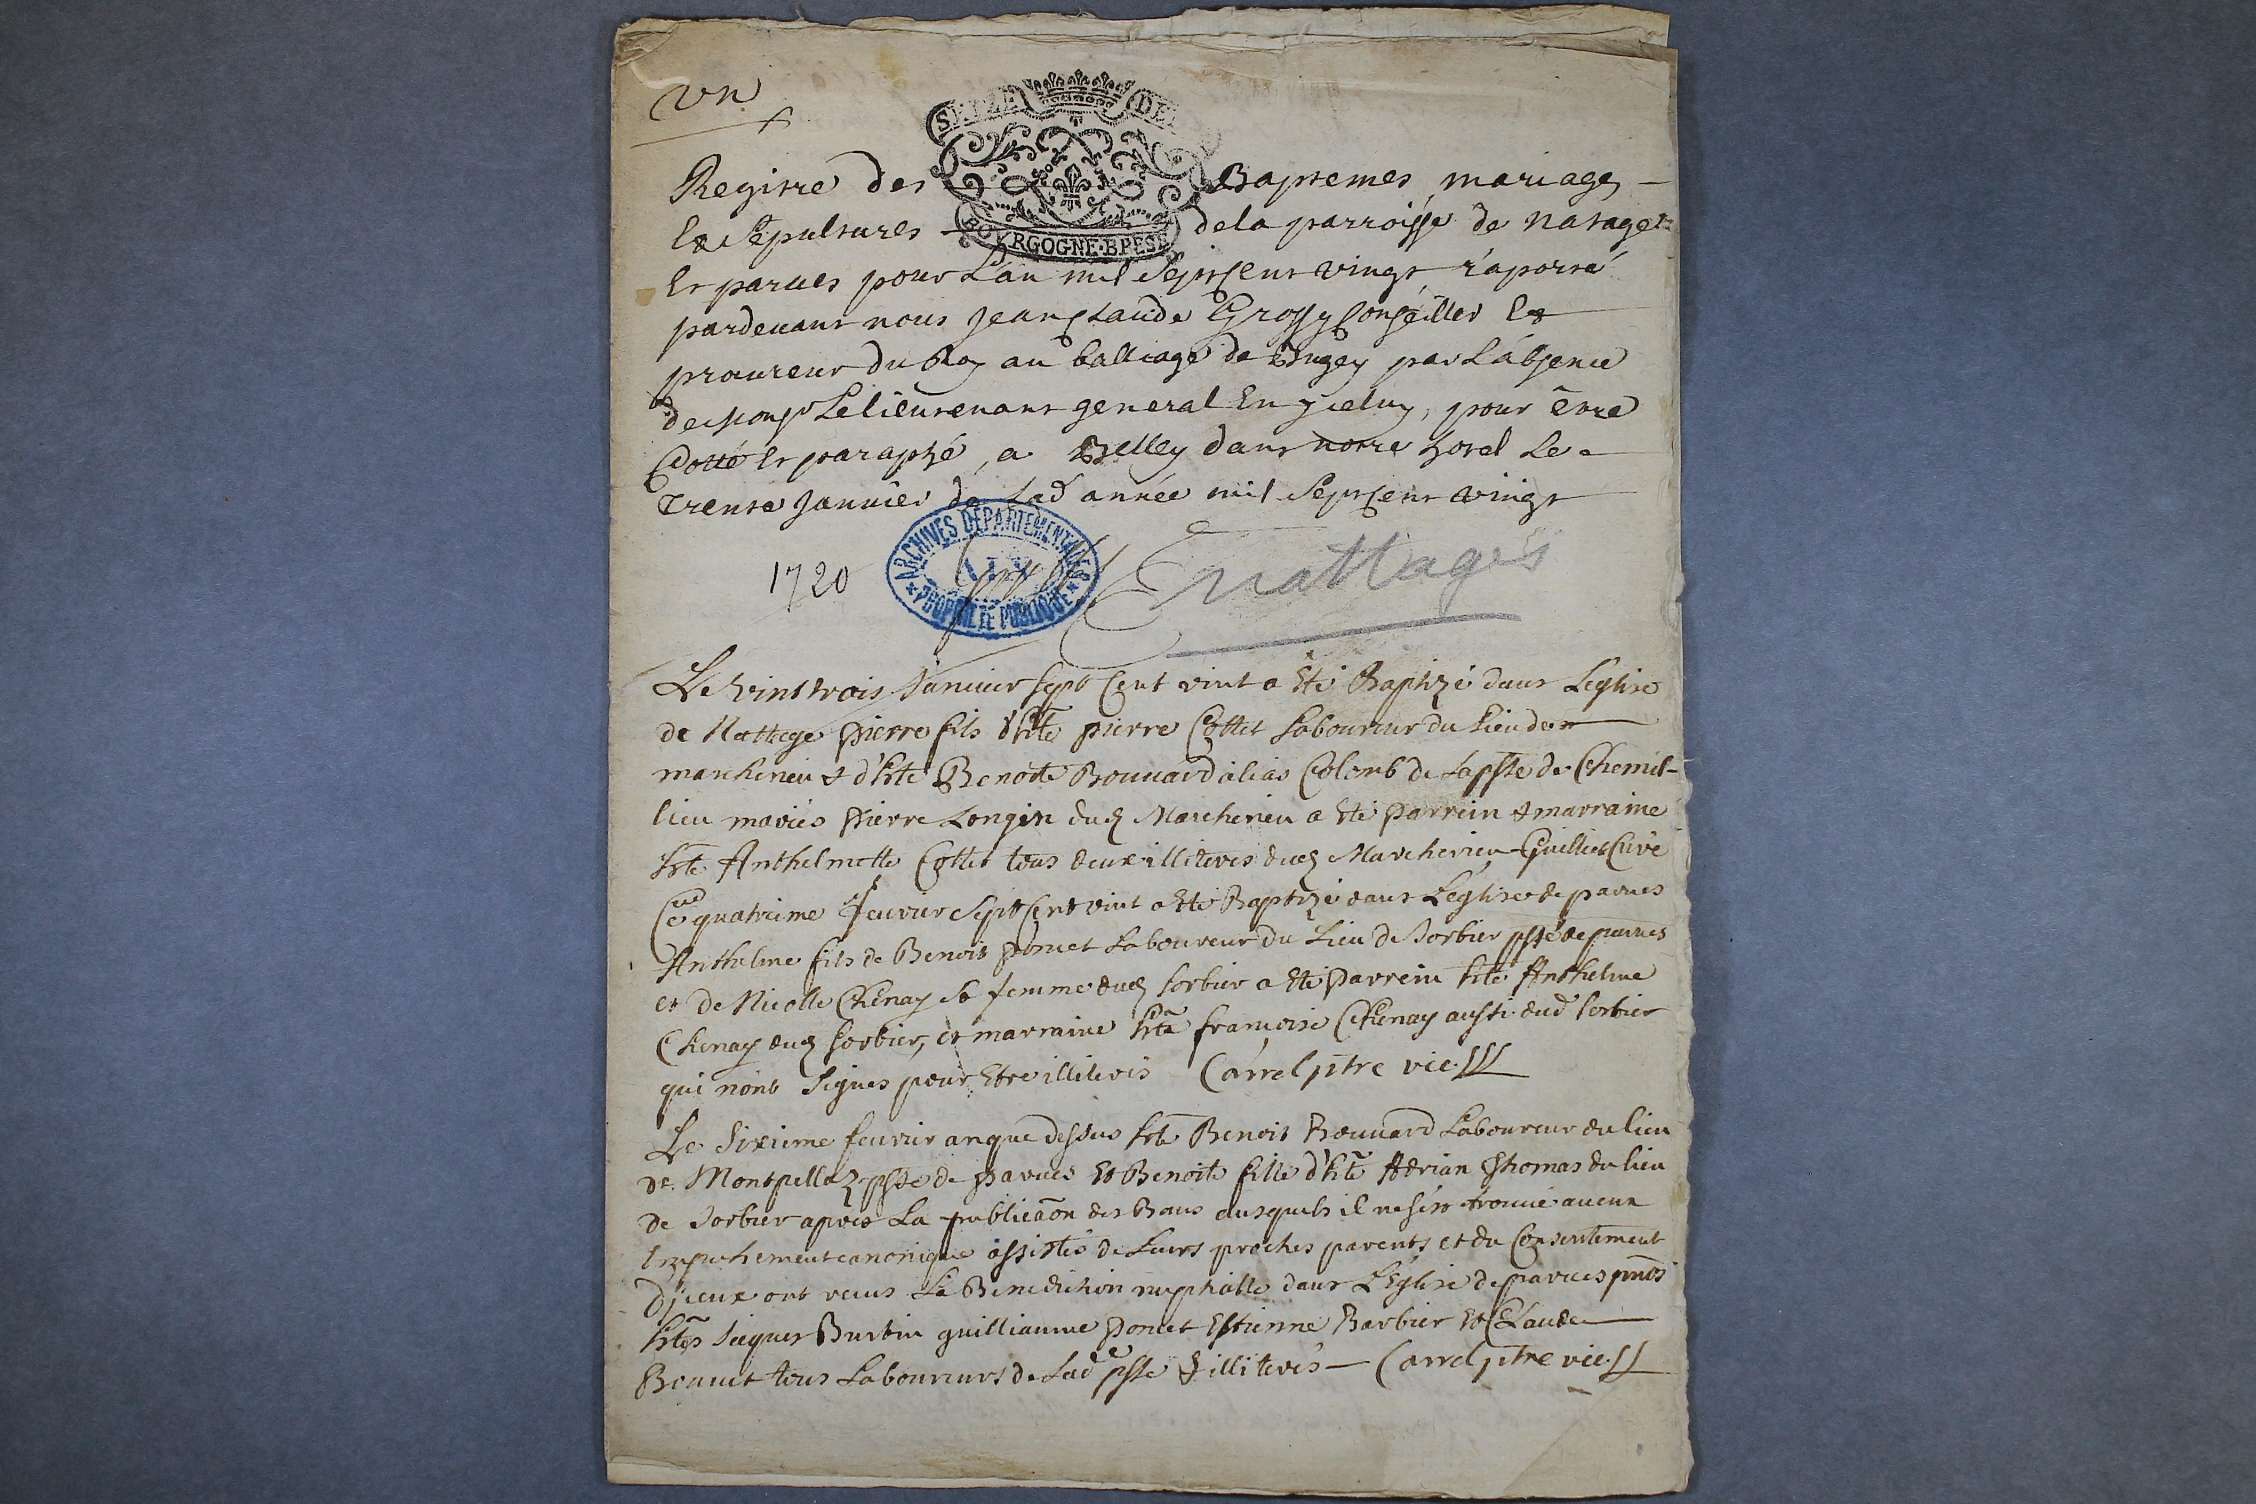 Vn
SEIZE DE
BOVRGOGNE·BRESSE
Registre des Baptemes, mariages
Et Sepultures de la parroisse de natages
Et parues pour L'an mil Septcent vingt raporté
pardeuant nous Jean Claude Grossy Conseiller Et
procureur du Roy au balliage de Bugey par L'absence
de Monsr Le lieutenant general En yceluy, pour être
Cotté Et paraphé, a Belley dans notre hotel Le
Trente Januier de Lad annéé mil Septcent vingt
ARCHIVES DÉPARTEMENTALES
AIN
PROPRIÉTÉ PUBLIQUE
1720
Nattages
Le vint trois Januier sept Cent vint a Eté Baptizé dans Leglise
de Nattage Pierre fils d'hte pierre Cottet Laboureur du Lieu de
marcherieu & d'hte Benoite Bouuard alias Colomb de La psse de Chemil-
lieu mariés Pierre Longin dud Marcherieu a Eté Parrein & marraine
hte Anthelmette Cottet tous deux illiterés dud Marcherieu Guilliet Curé
Ce quatrieme feurier Sept Cent vint a Eté Baptizé dans L'eglise de parues
Anthelme fils de Benoit poncet Laboureur du Lieu de Sorbier psse de parues
et de Nicolle Chenay sa femme dud Sorbier a Eté Parrein hte Anthelme
Chenay dud Sorbier, et marraine hte francoise Chenay aussi dud Sorbier
qui n'ont Signés pour Etre illiterés Carrel ptre vic.
Le Sixieme feurier an que dessus hte Benoit Bouuard Laboureur du lieu
de Montpellaz psse de Parues Et Benoite fille d'hte Adrian Thomas du lieu
de Sorbier apres La publicaon des Bans ausquels il ne s'est trouué aucun
Empechement canonique assistés de Leurs proches parents et du Consentement
D'jceux ont receus La Benediction nuptialle dans L'Eglise de parues pnts
htes Jacques Burtin guilliaume Poncet Estienne Barbier Et Claude
Bouuet tous Laboureurs de Lad psse & illiterés Carrel ptre vic.